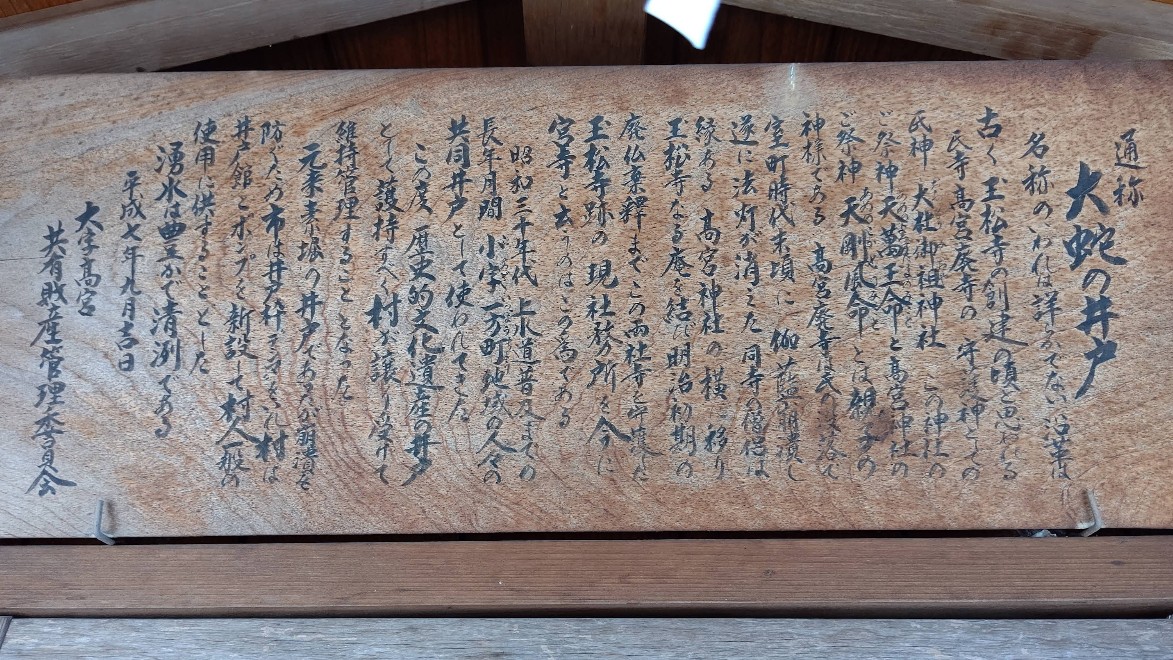 通称
大蛇の井戸
名称のいわれは詳かでない沿革は
古く玉松寺の創建の頃と思われる
氏寺高宮廃寺の守護神としての
氏神 大杜御祖神社 この神社の
ご祭神天萬玉命と高宮神社の
ご祭神 天剛風命 とは親子の
神様である 高宮廃寺は
室町時代末頃に 伽藍が崩潰し
遂に法灯が消えた 同寺の僧侶は
縁ある 高宮神社の横に移り
玉松寺なる庵を結び明治初期の
廃仏棄釈までこの両社寺を
玉松寺跡の 現社務所を今に
宮寺と玄うのはこの為である
昭和三十年代 上水道普及までの
長年月間 小字一万町地域の人々の
共同井戸として使われてきた
この度 歴史的文化遺産の井戸
として護持すべく村が譲り受けて
維持管理することとなった
元来素堀の井戸であるが崩潰を
防ぐため市は井戸枠 それ村は
井戸館とポンプを新設して村人一般の
使用に供することとした
湧水は豊かで清冽である
平成七年九月吉日
大字高宮
共有財産管理委員会